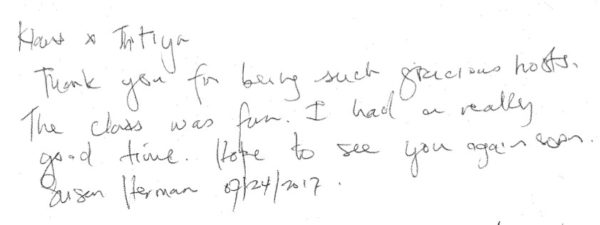 Klaus & Thitiya
Thank you for being such gracious hosts.
The class was fun. I had a really
good time. Hope to see you again soon.
Susan Herman 09/24/2017.